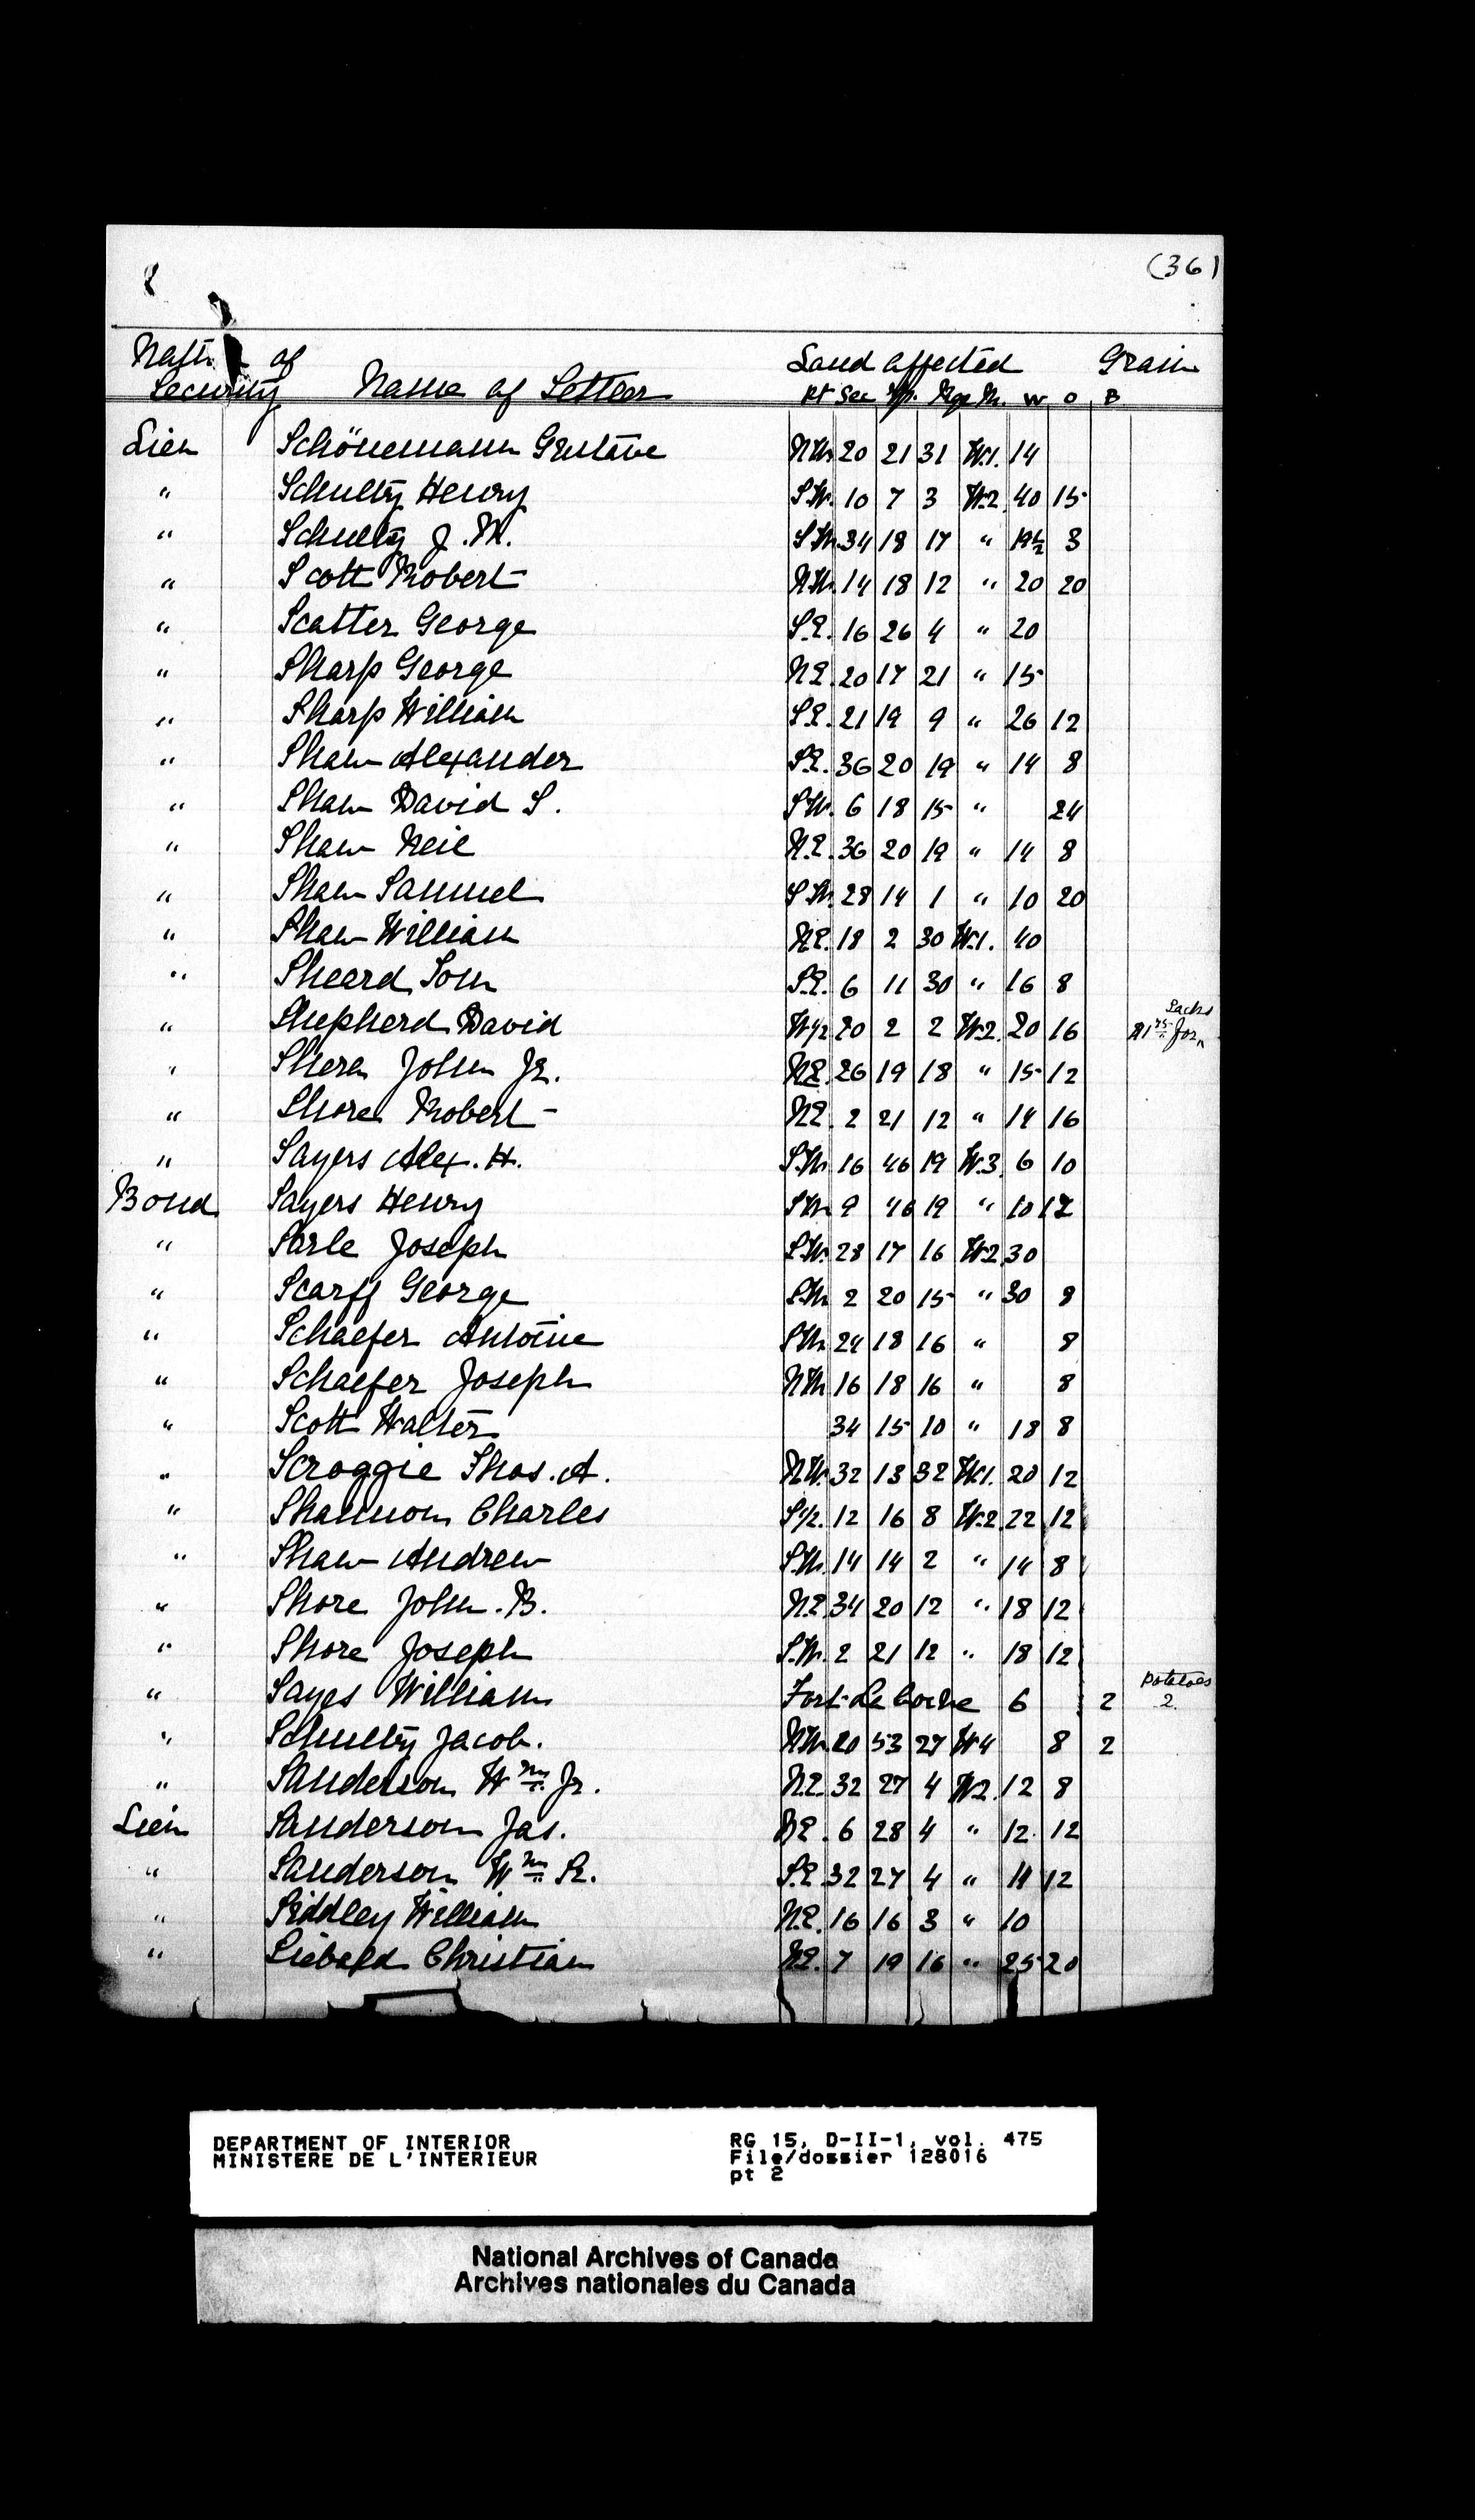 (36)
Nature of Land affected Grain
Security Name of Settler Pt Sec Tp. Rge M. W O B
Lien Schönemann Gustave N.W. 20 21 31 W.1. 14
" Schultz Henry S.W. 10 7 3 W.2 40 15
" Schultz J. M. S.W. 34 18 17 " 19½ 3
" Scott Robert N.W. 14 18 12 " 20 20
" Scatter George S.E. 16 26 4 " 20
" Sharp George N.E. 20 17 21 " 15
" Sharp William S.E. 21 19 9 " 26 12
" Shaw Alexander S.E. 36 20 19 " 14 8
" Shaw David S. S.W. 6 18 15 " 24
" Shaw Neil N.E. 36 20 19 " 14 8
" Shaw Samuel S.W. 28 14 1 " 10 20
" Shaw William N.E. 18 2 30 W.1. 40
" Sheard Tom S.E. 6 11 30 " 16 8
" Shepherd David W½ 20 2 2 W.2. 20 16 Sacks
" Shera John Jr. N.E. 26 19 18 " 15 12
" Shore Robert N.E. 2 21 12 " 14 16
" Sayers Alex. H. S.W. 16 46 19 W.3 6 10
Bond Sayers Henry S.W. 9 46 19 " 10 12
" Sarle Joseph S.W. 28 17 16 W.2 30
" Scarff George S.W. 2 20 15 " 30 8
" Schaefer Antoine S.W. 24 18 16 " 8
" Schaefer Joseph N.W. 16 18 16 " 8
" Scott Walter 34 15 10 " 18 8
" Scroggie Thos. A. N.W. 32 13 32 W.1. 20 12
" Shannon Charles S½. 12 16 8 W.2. 22 12
" Shaw Andrew S.W. 14 14 2 " 14 8
" Shore John. B. N.E. 34 20 12 " 18 12
" Shore Joseph S.W. 2 21 12 " 18 12
" Sayes William Fort-La Corne 6 2 potatoes 2.
" Schultz Jacob. N.W. 20 53 27 W4 8 2
" Sanderson Wm. Jr. N.E. 32 27 4 W.2. 12 8
Lien Sanderson Jas. N.E. 6 28 4 " 12 12
" Sanderson Wm. Sr. S.E. 32 27 4 " 11 12
" Siddley William N.E. 16 16 3 " 10
" Siebald Christian N.E. 7 19 16 " 25 20
DEPARTMENT OF INTERIOR
MINISTERE DE L'INTERIEUR
RG 15, D-II-1, vol. 475
File/dossier 128016
pt 2
National Archives of Canada
Archives nationales du Canada